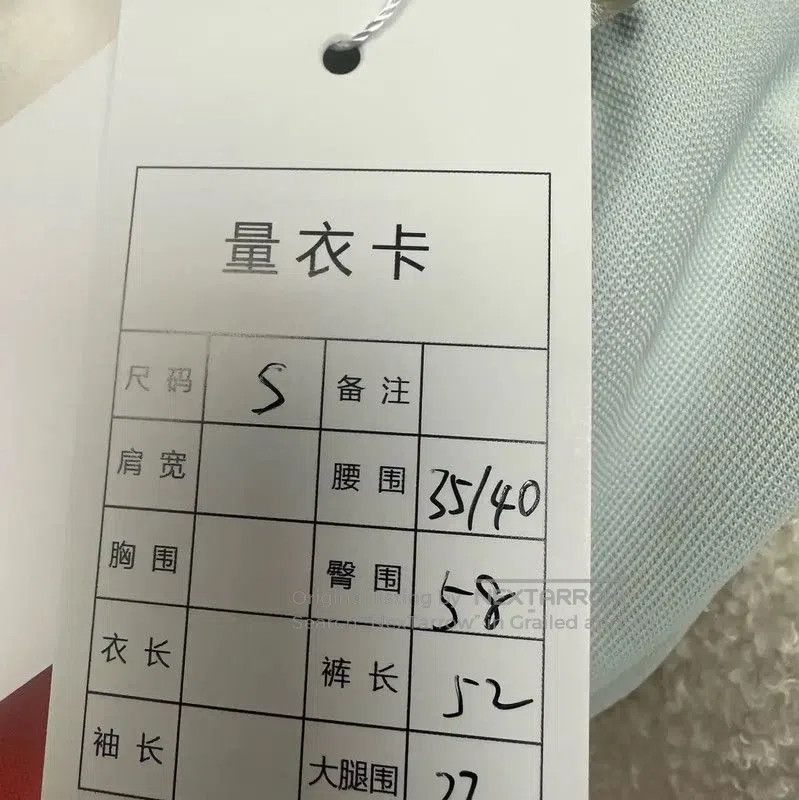 量衣卡
尺码 S 备注
肩宽 腰围 35/40
胸围 臀围 58
衣长 裤长 52
袖长 大腿围
Original listing by NEXTARROW
Search "NexTarrow" in Grailed a